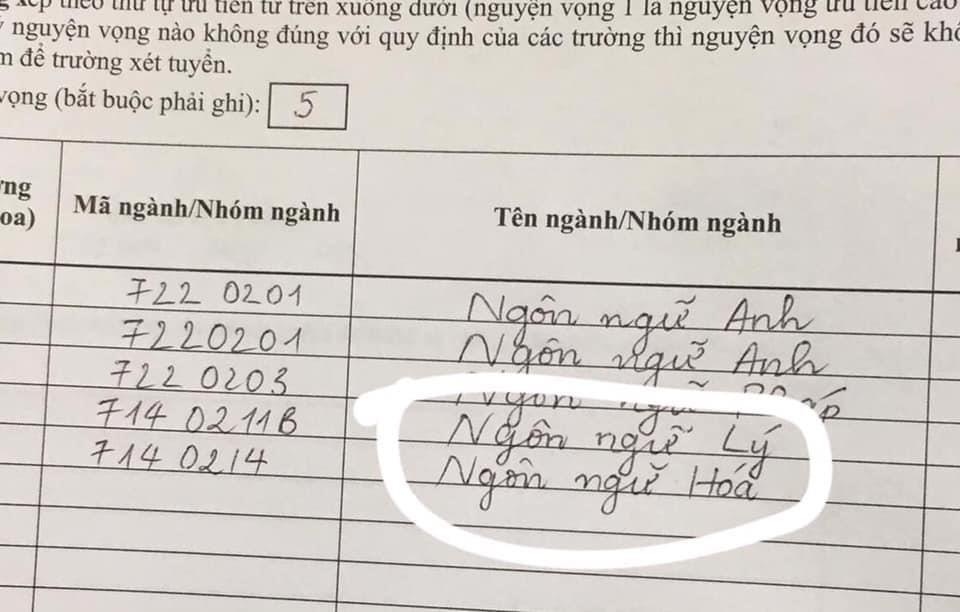 xếp theo thứ tự ưu tiên từ trên xuống dưới (nguyện vọng 1 là nguyện vọng ưu tiên cao
nguyện vọng nào không đúng với quy định của các trường thì nguyện vọng đó sẽ khô
để trường xét tuyển.
vọng (bắt buộc phải ghi): 5
Mã ngành/Nhóm ngành Tên ngành/Nhóm ngành
722 0201 Ngôn ngữ Anh
7220201 Ngôn ngữ Anh
722 0203 Ngôn ngữ Pháp
714 0211B Ngôn ngữ Lý
714 0214 Ngôn ngữ Hoá